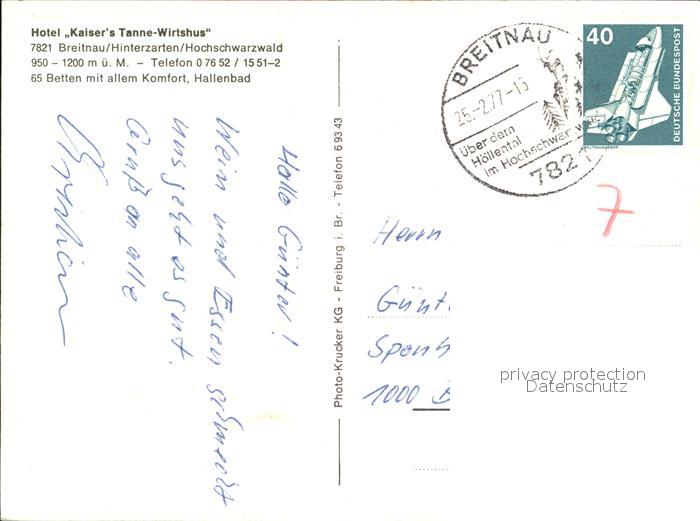 Hotel „Kaiser's Tanne-Wirtshus"
7821 Breitnau/Hinterzarten/Hochschwarzwald
950 – 1200 m ü. M. – Telefon 0 76 52 / 15 51–2
65 Betten mit allem Komfort, Hallenbad
Hallo Günter!
Wein und Essen schmeckt
uns geht es gut.
Gruß an alle
Photo-Krucker KG - Freiburg i. Br. - Telefon 6 93 43
BREITNAU
25.-2.77-15
über dem
Höllental
im Hochschwarzwald
7821
40
DEUTSCHE BUNDESPOST
WELTRAUMLABOR
7
Herrn
Günt
1000 B
privacy protection
Datenschutz